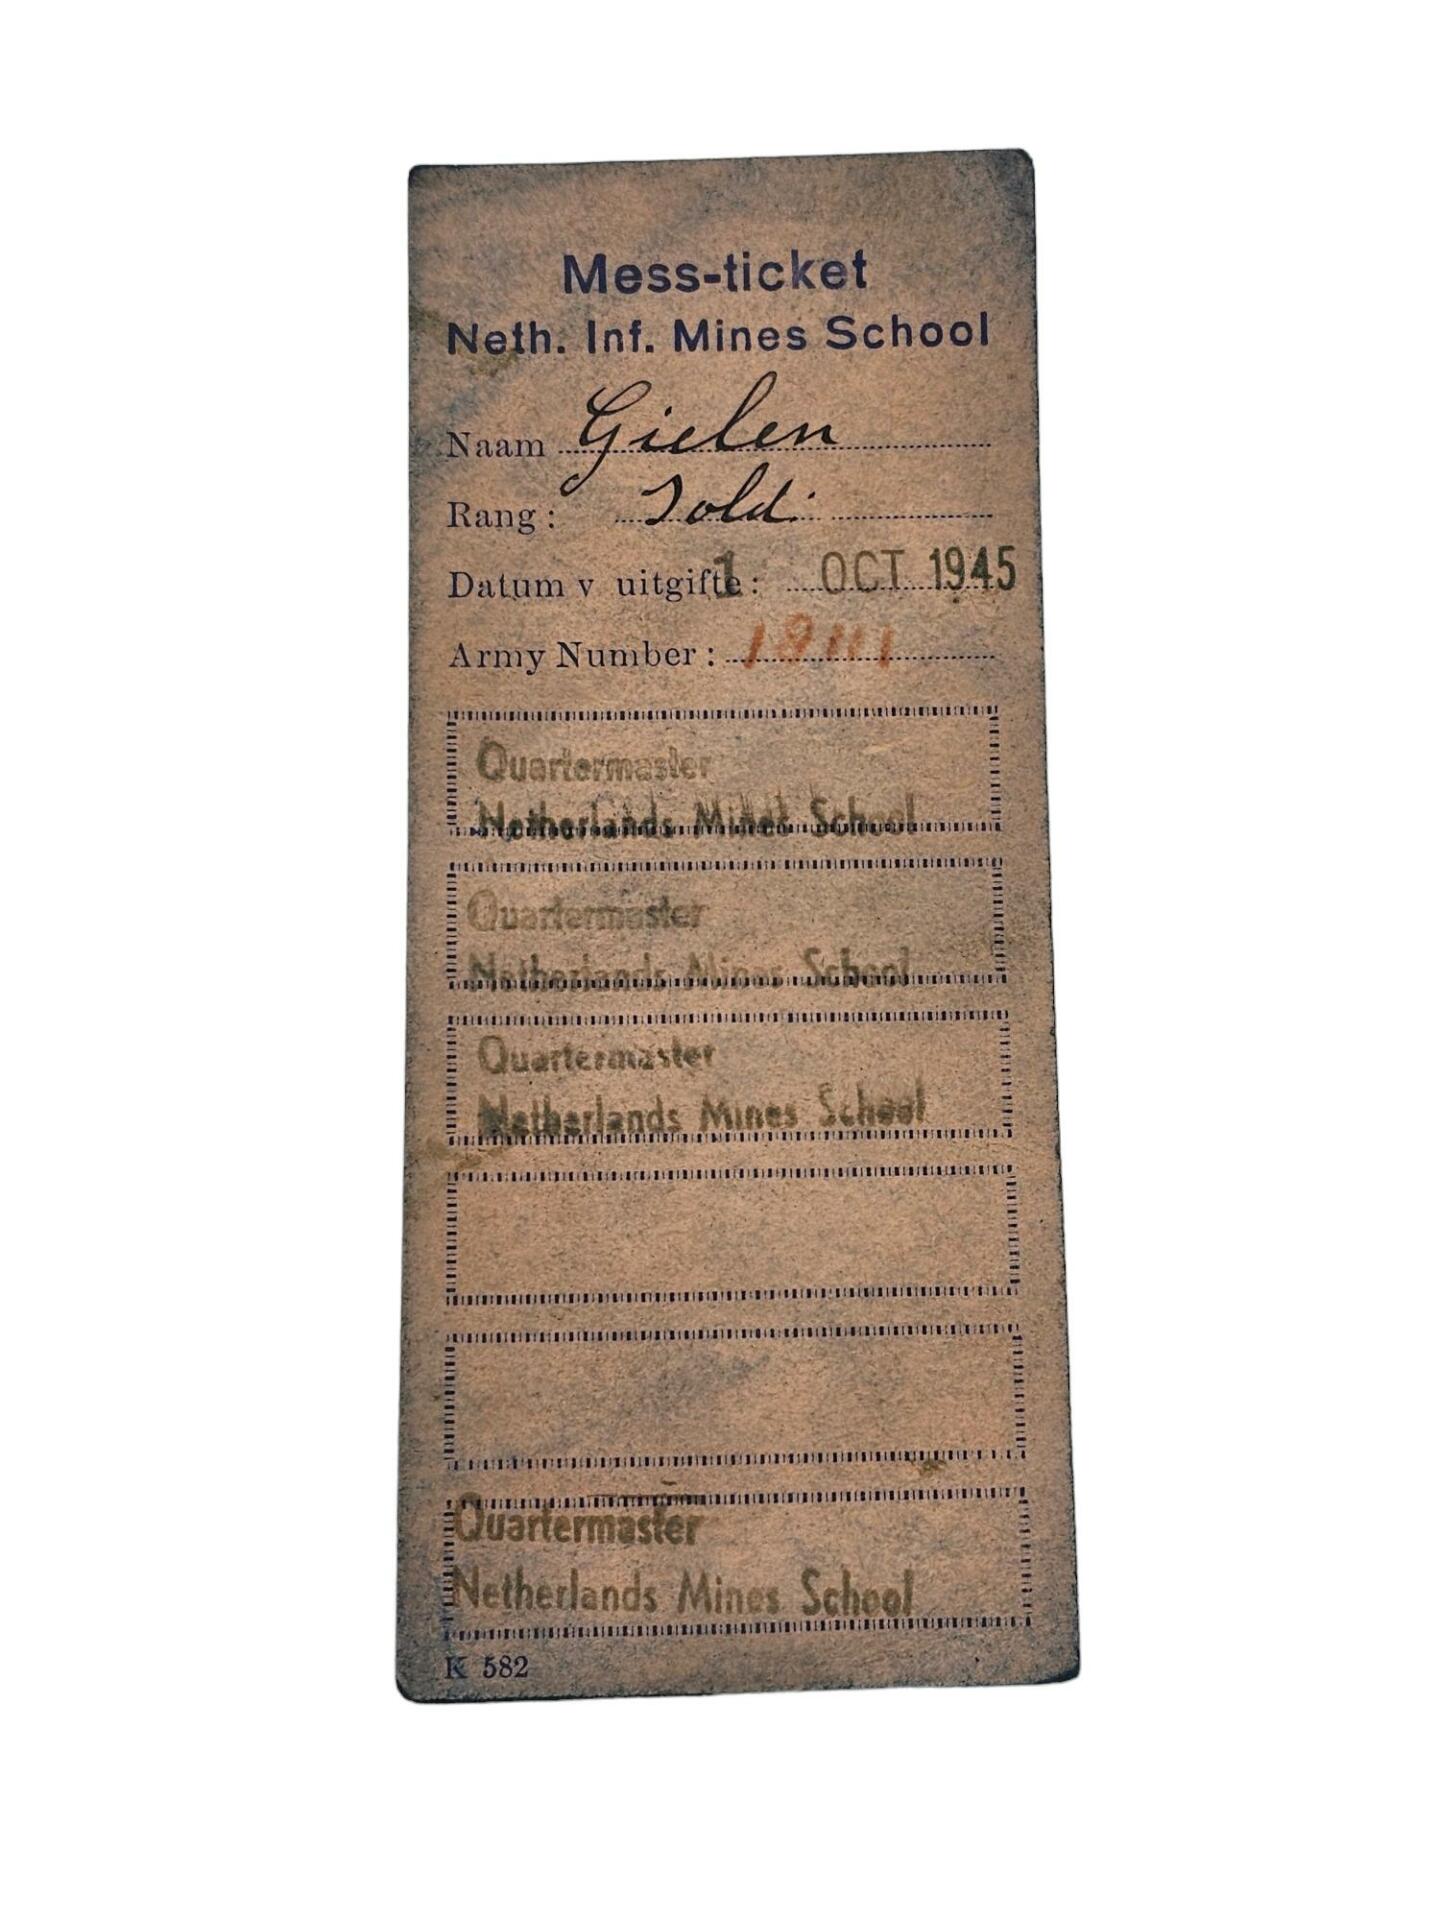 Mess-ticket
Neth. Inf. Mines School
Naam Gielen
Rang: Sold.
Datum v uitgifte: 1 OCT 1945
Army Number: 19111
Quartermaster
Netherlands Mines School
Quartermaster
Netherlands Mines School
Quartermaster
Netherlands Mines School
Quartermaster
Netherlands Mines School
K 582